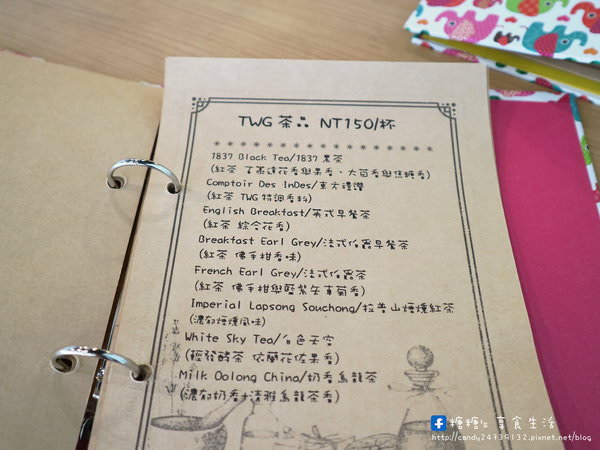 TWG 茶品 NT150/杯
1837 Black Tea/1837 黑茶
(紅茶 了不遠花香與果香、大茴香與焦糖香)
Comptoir Des InDes/東方禮讚
(紅茶 TWG 特調香料)
English Breakfast/英式早餐茶
(紅茶 綜合花香)
Breakfast Earl Grey/法式伯爵早餐茶
(紅茶 佛手柑香味)
French Earl Grey/法式伯爵茶
(紅茶 佛手柑與藍紫矢車菊香)
Imperial Lapsong Souchong/拉普山煙燻紅茶
(濃郁煙燻風味)
White Sky Tea/白色天空
(輕發酵茶 依蘭花佐果香)
Milk Oolong China/奶香烏龍茶
(濃郁奶香+清雅烏龍茶香)
糖糖's 享食生活
http://candy24739132.pixnet.net/blog